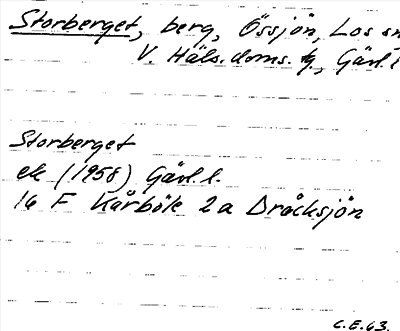 Storberget, berg, Össjön, Los sn
V. Häls. doms. tg., Gävl. l
Storberget
ek (1958) Gävl. l.
16 F Kårböle 2a Dråcksjön
C.E.63.